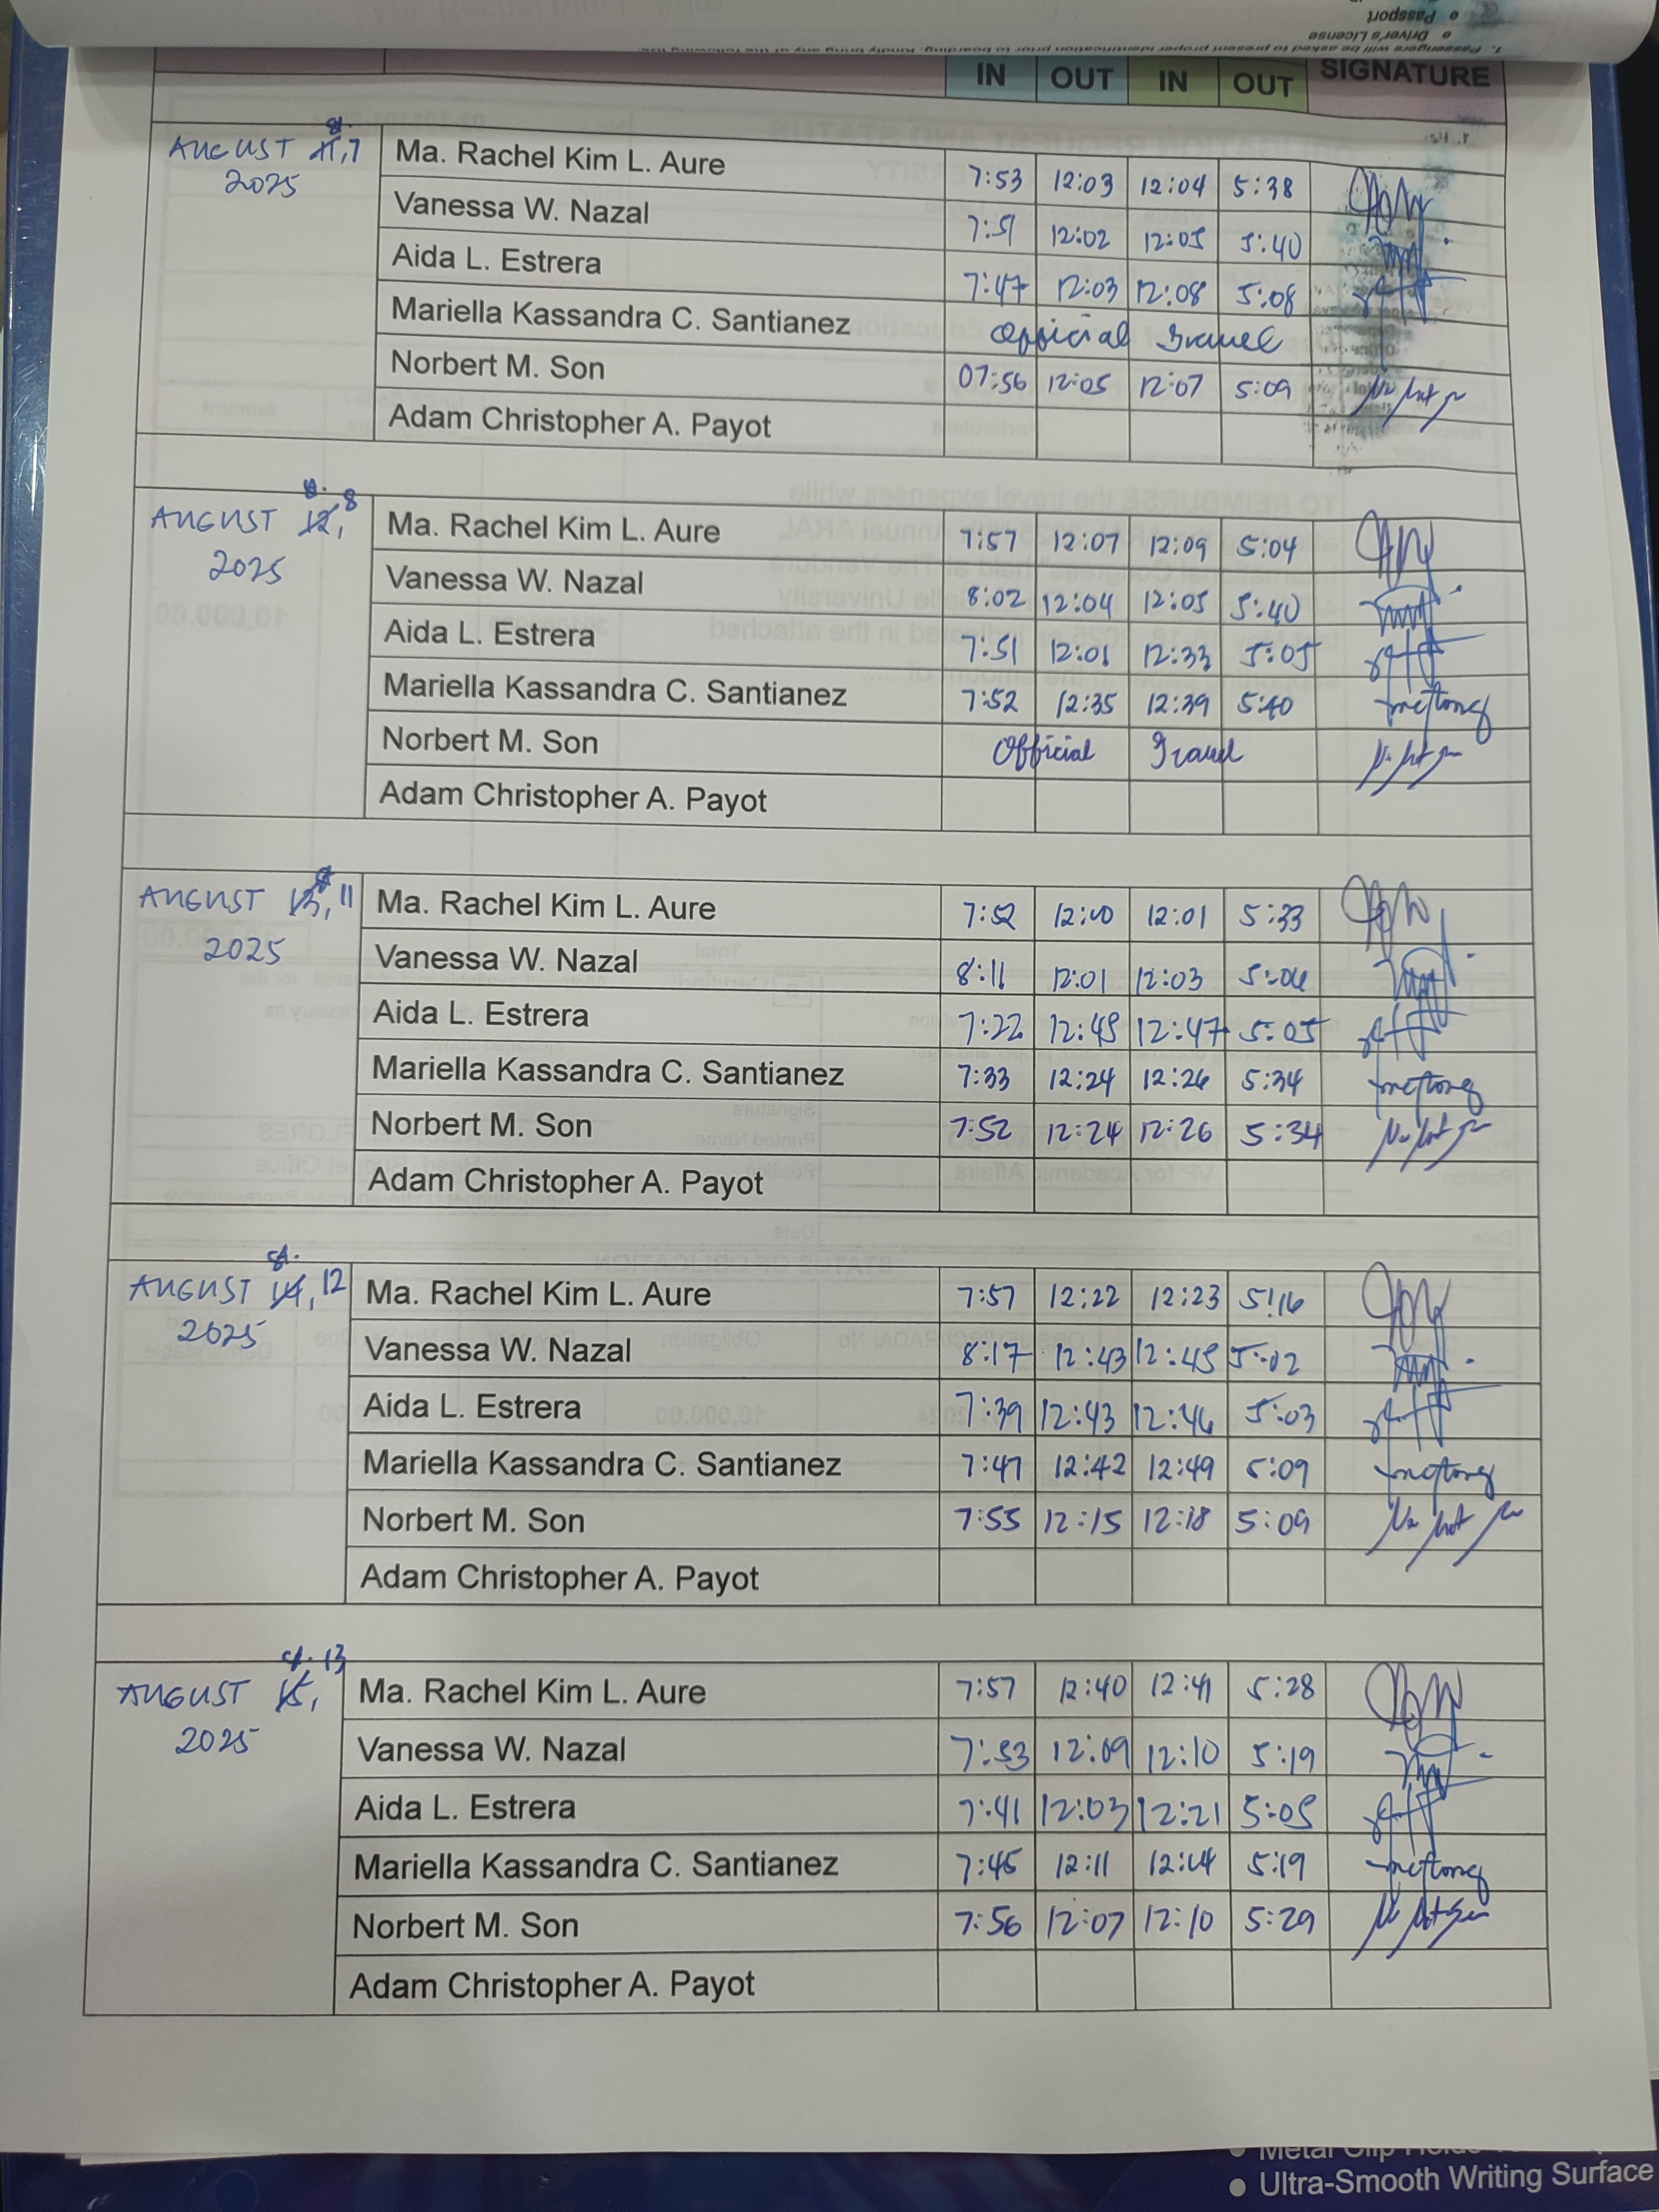 Passport
Driver's License
1. Passengers will be asked to present proper identification prior to boarding. Kindly bring any of the following IDs:
IN OUT IN OUT SIGNATURE
AUGUST 11, 7
2025
Ma. Rachel Kim L. Aure 7:53 12:03 12:04 5:38
Vanessa W. Nazal 7:51 12:02 12:05 5:40
Aida L. Estrera 7:47 12:03 12:08 5:08
Mariella Kassandra C. Santianez Official Travel
Norbert M. Son 07:56 12:05 12:07 5:09
Adam Christopher A. Payot
AUGUST 12, 8
2025
Ma. Rachel Kim L. Aure 7:57 12:07 12:09 5:04
Vanessa W. Nazal 8:02 12:04 12:05 5:40
Aida L. Estrera 7:51 12:01 12:33 5:05
Mariella Kassandra C. Santianez 7:52 12:35 12:39 5:40
Norbert M. Son Official Travel
Adam Christopher A. Payot
AUGUST 13, 11
2025
Ma. Rachel Kim L. Aure 7:52 12:00 12:01 5:33
Vanessa W. Nazal 8:11 12:01 12:03 5:06
Aida L. Estrera 7:22 12:45 12:47 5:05
Mariella Kassandra C. Santianez 7:33 12:24 12:26 5:34
Norbert M. Son 7:52 12:24 12:26 5:34
Adam Christopher A. Payot
AUGUST 14, 12
2025
Ma. Rachel Kim L. Aure 7:57 12:22 12:23 5:16
Vanessa W. Nazal 8:17 12:43 12:45 5:02
Aida L. Estrera 7:39 12:43 12:46 5:03
Mariella Kassandra C. Santianez 7:47 12:42 12:49 5:09
Norbert M. Son 7:55 12:15 12:18 5:09
Adam Christopher A. Payot
AUGUST 15, 13
2025
Ma. Rachel Kim L. Aure 7:57 12:40 12:41 5:28
Vanessa W. Nazal 7:53 12:09 12:10 5:19
Aida L. Estrera 7:41 12:03 12:21 5:05
Mariella Kassandra C. Santianez 7:45 12:11 12:14 5:19
Norbert M. Son 7:56 12:07 12:10 5:29
Adam Christopher A. Payot
Metal Clip Holds
Ultra-Smooth Writing Surface